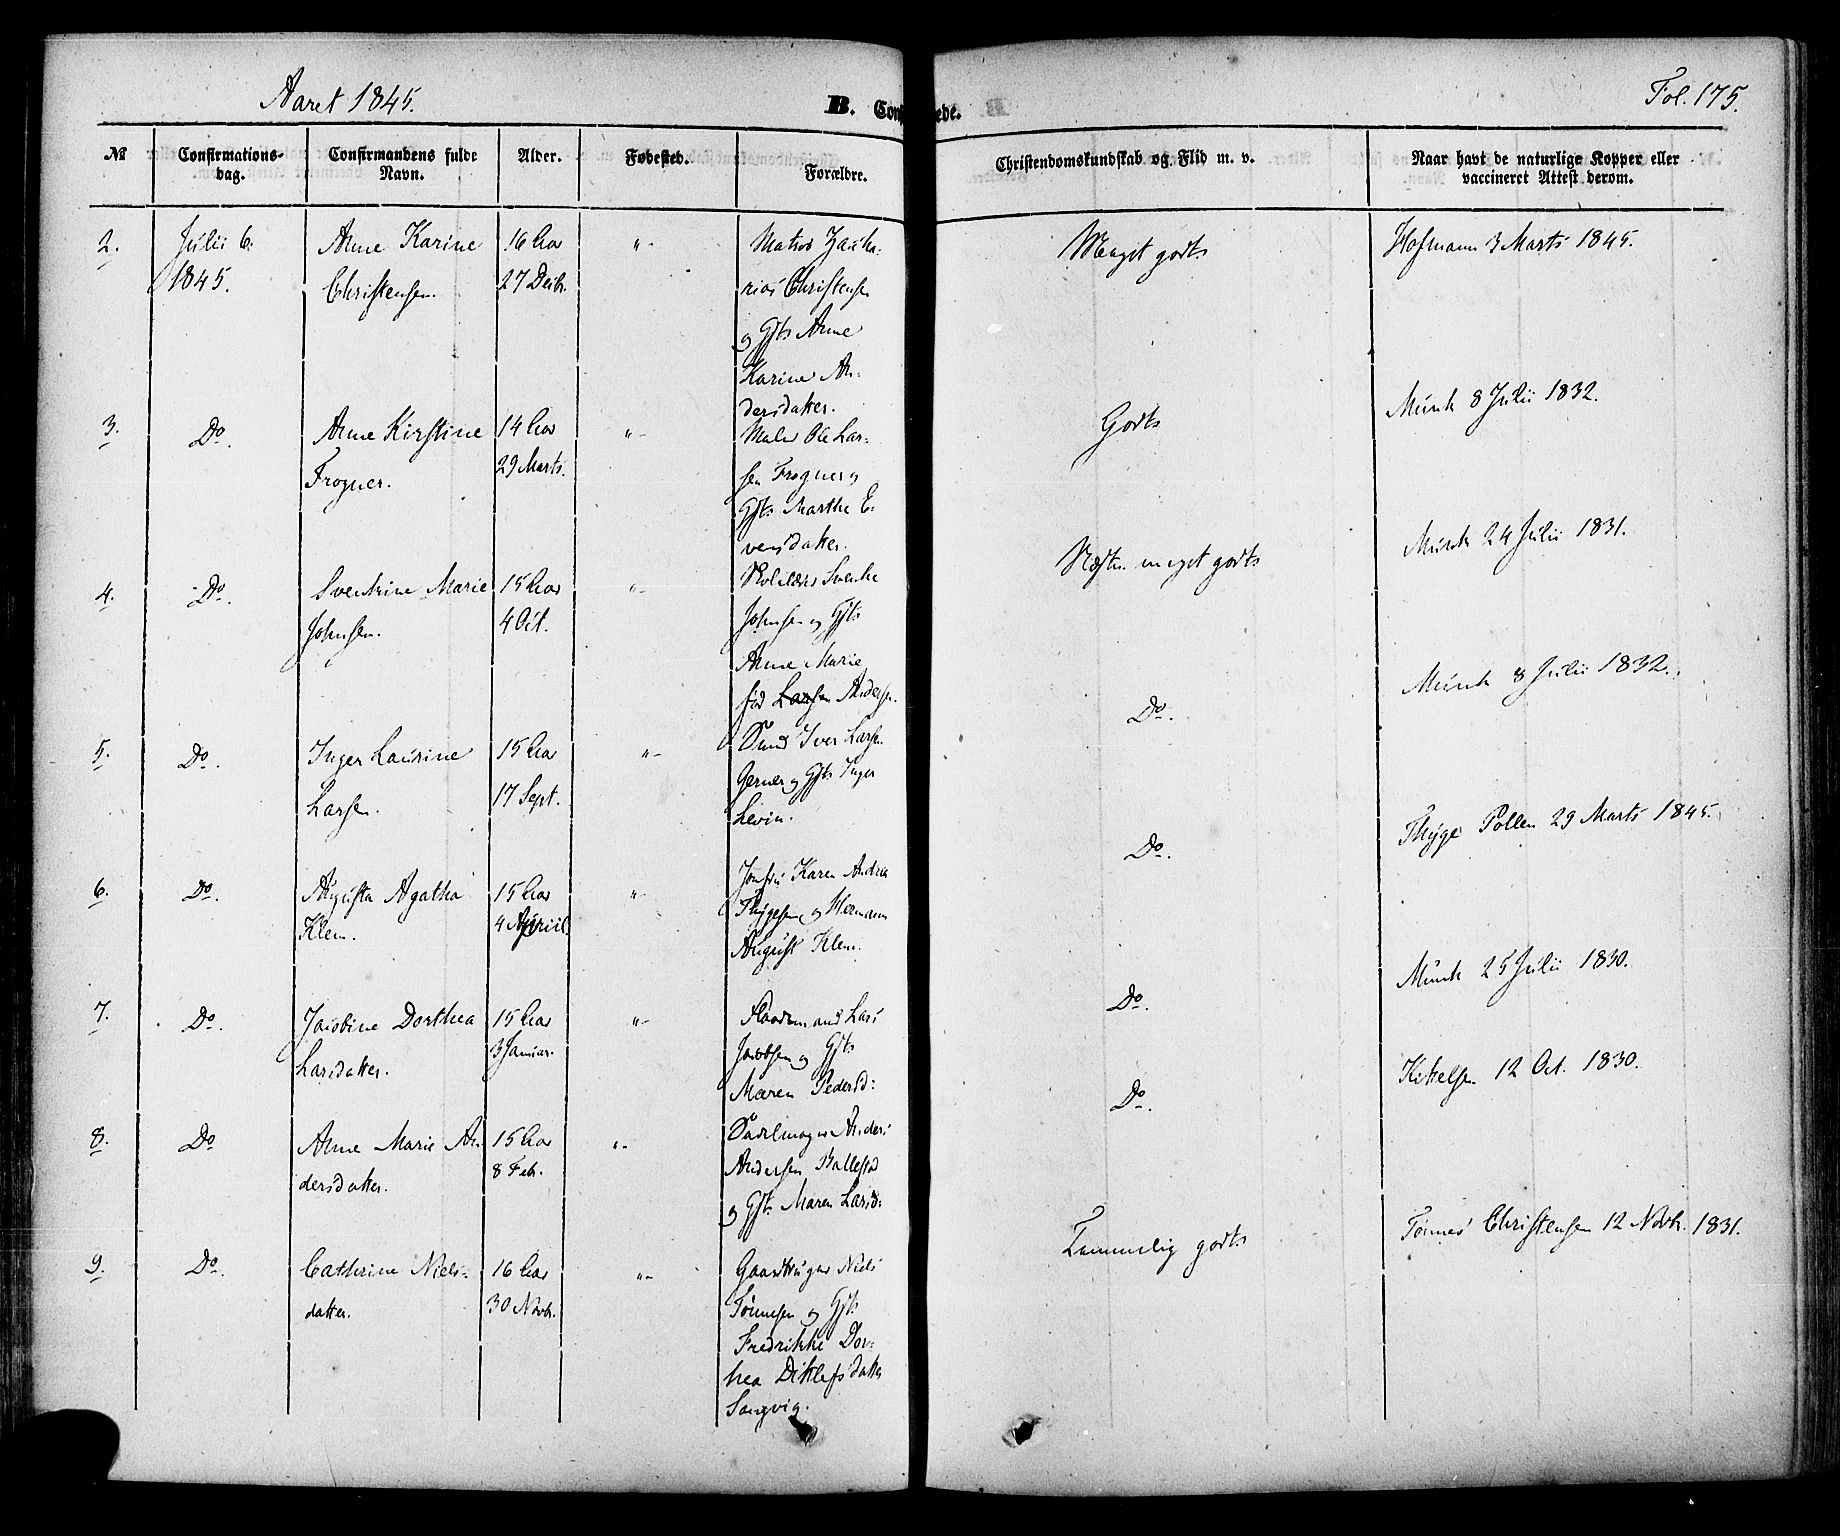 Aaret 1845.
B. Conf
ede.
Fol. 175.
No
Confirmations-
dag.
Confirmandens fulde
Navn.
Alder.
Fødested.
Forældre.
Christendomskundskab og Flid m. v.
Naar havt de naturlige Kopper eller
vaccineret Attest derom.
2.
Julii 6.
1845.
Anne Karine
Christensen.
16 Aar
27 Decbr.
"-
Matros Zacha-
rias Christensen
og Gjts Anne
Karine An-
dersdatter.
Meget godt
Hofmann 3 Marts 1845.
3.
Do.
Anne Kirstine
Frogner.
14 Aar
29 Marts.
"-
Maler Ole Lar-
sen Frogner og
Gjts Marthe E-
vensdatter.
Godt
Münch 8 Julii 1832.
4.
Do.
Svenkine Marie
Johnsen.
15 Aar
4 Oct.
"-
Svenke
Johnsen og Gjts
Anne Marie
fød Larsen Andersen.
Næsten meget godt
Münch 24 Julii 1831.
5.
Do.
Inger Laurine
Larsen.
15 Aar
17 Sept.
"-
Smed Iver Larsen
Gerner og Gjts Inger
Levin.
Do.
Münch 8 Julii 1832.
6.
Do.
Augusta Agatha
Klem.
15 Aar
4 April.
"-
Jomfru Karen Andrea
Thygesen og Hermann
August Klem.
Do.
Thyge Pollen 29 Marts 1845.
7.
Do.
Jacobine Dorthea
Larsdatter.
15 Aar
3 Januar.
"-
Lars
Jacobsen og Gjts
Maren Pedersd:
Do.
Münch 25 Julii 1830.
8.
Do.
Anne Marie An-
dersdatter.
15 Aar
8 Feb.
"-
Sadelmager Anders
Andersen Ballestad
og Gjts Maren Larsd:
Do.
Kittelsen 12 Oct. 1830.
9.
Do.
Cathrine Niels-
datter.
16 Aar
30 Novbr.
"-
Gaardbruger Niels
Tönnesen og Gjts
Fredrikke Dor-
thea Ditlefsdatter
Songvig.
Temmelig godt
Tönnes Christensen 12 Novbr. 1831.